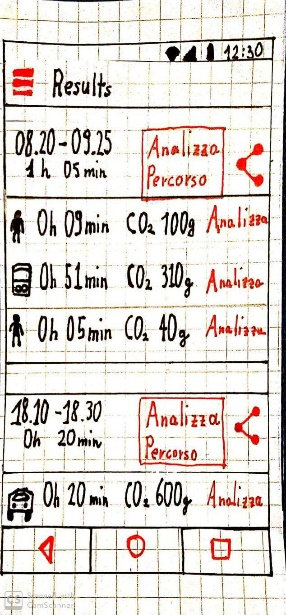 12:30
Results
08.20-09.25
1h 05min
Analizza
Percorso
0h 09min CO₂ 100g Analizza
0h 51min CO₂ 310g Analizza
0h 05min CO₂ 40g Analizza
18.10-18.30
0h 20min
Analizza
Percorso
0h 20min CO₂ 600g Analizza
CS CamScanner